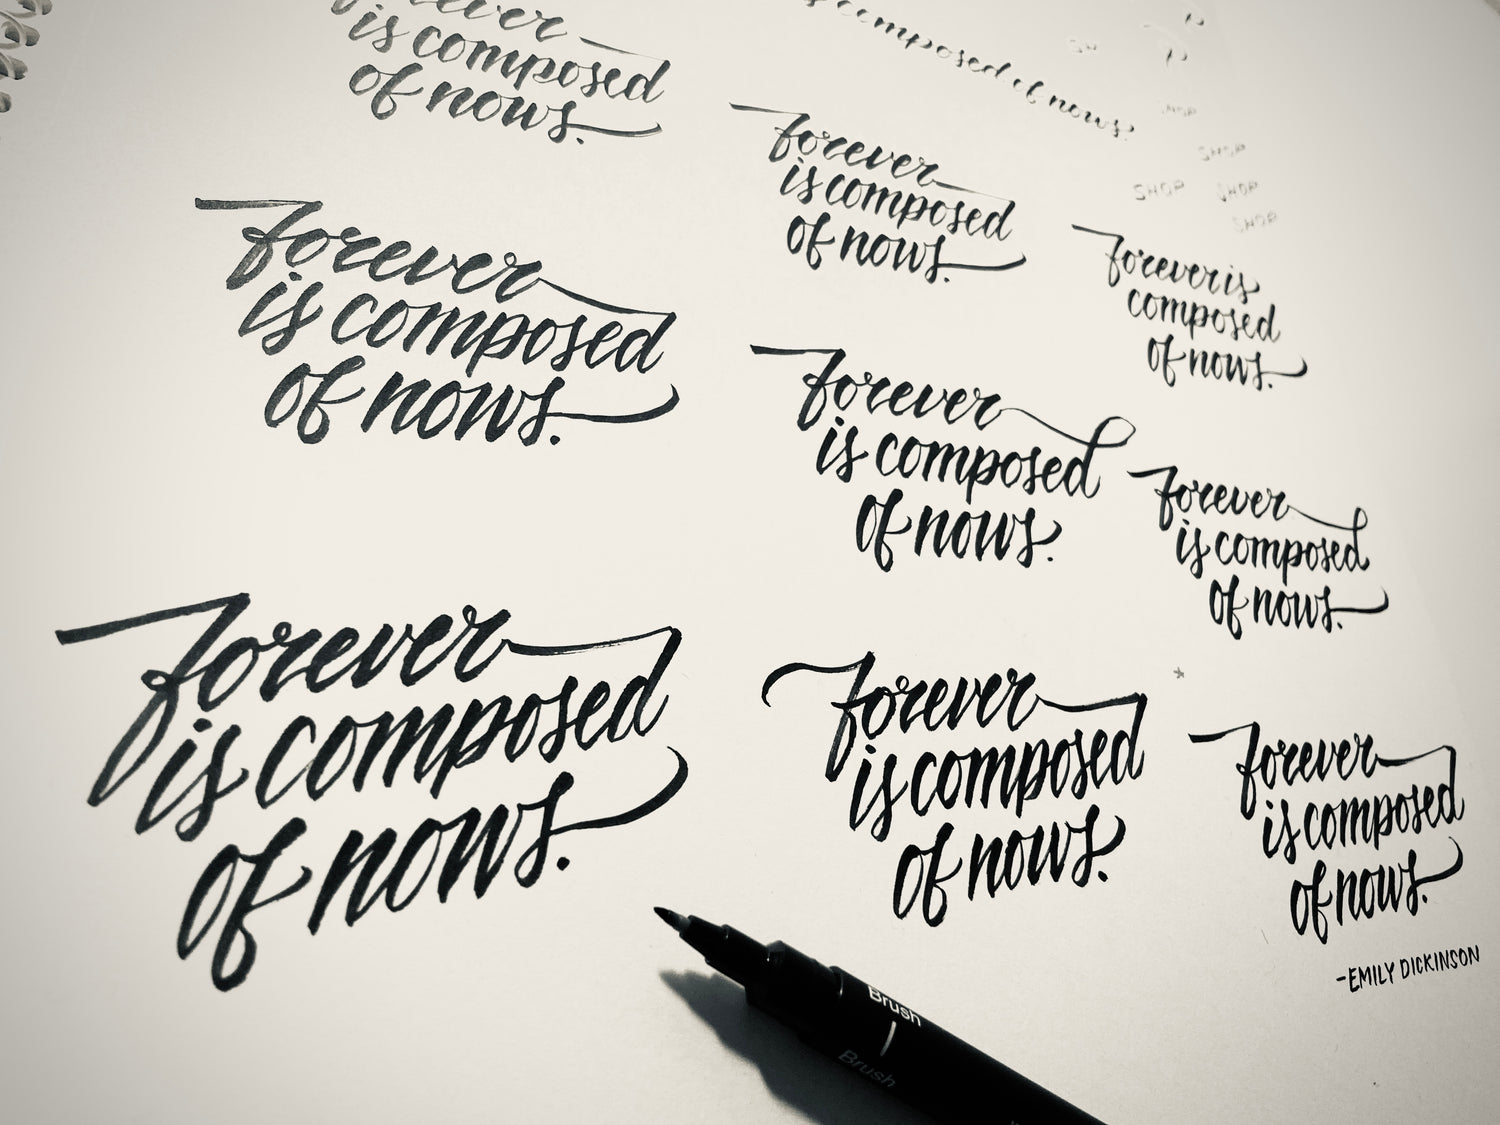 forever
is composed
of nows.
composed of nows.
forever
is composed
of nows.
SHOP
SHOP
SHOP
SHOP
forever
is composed
of nows.
forever is
composed
of nows.
forever
is composed
of nows.
forever
is composed
of nows.
forever
is composed
of nows.
forever
is composed
of nows.
forever
is composed
of nows.
-EMILY DICKINSON
Brush
Brush